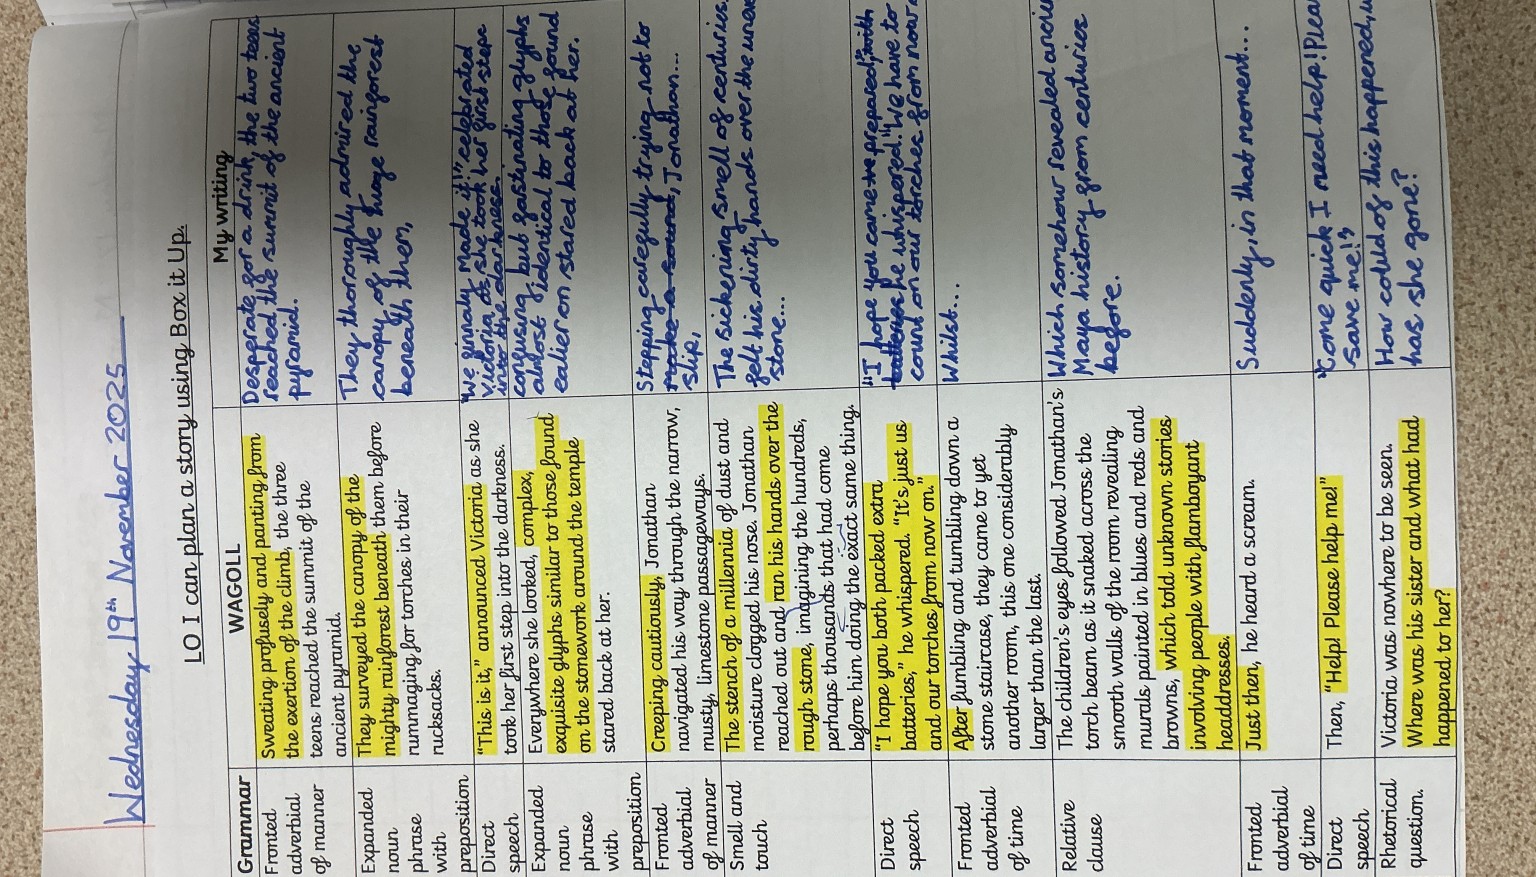 Wednesday 19th November 2025
LO I can plan a story using Box it Up.
Grammar
WAGOLL
My writing
Fronted
adverbial
of manner
Sweating profusely and panting from
the exertion of the climb, the three
teens reached the summit of the
ancient pyramid.
Desperate for a drink, the two teens
reached the summit of the ancient
pyramid.
Expanded
noun
phrase
with
preposition
They surveyed the canopy of the
mighty rainforest beneath them before
rummaging for torches in their
rucksacks.
They thoroughly admired the
canopy of the huge rainforest
beneath them,
Direct
speech
"This is it," announced Victoria as she
took her first step into the darkness.
"We finnaly made it!" celebrated
Victoria as she took her first step
into the darkness.
Expanded
noun
phrase
with
preposition
Everywhere she looked, complex,
exquisite glyphs similar to those found
on the stonework around the temple
stared back at her.
confusing, but fasinating glyphs
almost identical to those found
ealier on stared back at her.
Fronted
adverbial
of manner
Creeping cautiously, Jonathan
navigated his way through the narrow,
musty, limestone passageways.
Stepping carefully trying not to
make a sound, Jonathan...
slip,
Smell and
touch
The stench of a millennia of dust and
moisture clogged his nose. Jonathan
reached out and ran his hands over the
rough stone, imagining the hundreds,
perhaps thousands that had come
before him doing the exact same thing.
The sickening smell of centuries
felt his dirty hands over the
stone...
Direct
speech
"I hope you both packed extra
batteries," he whispered. "It's just us
and our torches from now on."
"I hope you came prepared," with
batteries he whispered. "We have to
count on our torches from now
Fronted
adverbial
of time
After fumbling and tumbling down a
stone staircase, they came to yet
another room, this one considerably
larger than the last.
Whilst...
Relative
clause
The children's eyes followed Jonathan's
torch beam as it snaked across the
smooth walls of the room revealing
murals painted in blues and reds and
browns, which told unknown stories
involving people with flamboyant
headdresses.
Which somehow revealed
Maya history from centuries
before.
Fronted
adverbial
of time
Just then, he heard a scream.
Suddenly, in that moment...
Direct
speech
Then, "Help! Please help me!"
"Come quick I need help! 
save me!"
Rhetorical
question.
Victoria was nowhere to be seen.
Where was his sister and what had
happened to her?
How could of this happened,
has she gone?